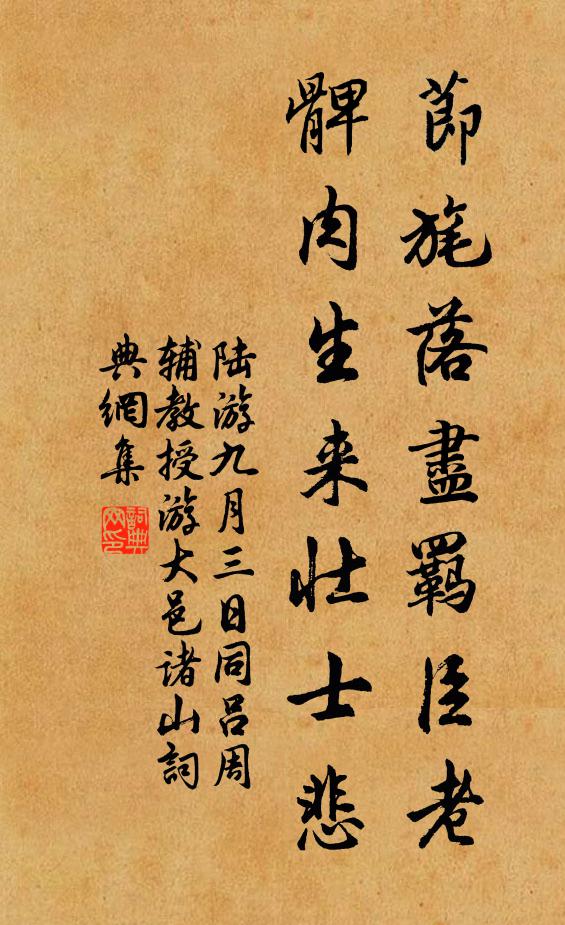 節旄落盡羈臣老
髀肉生来壮士悲
陆游九月三日同吕周
辅教授游大邑诸山詞
典網集
詞典網印